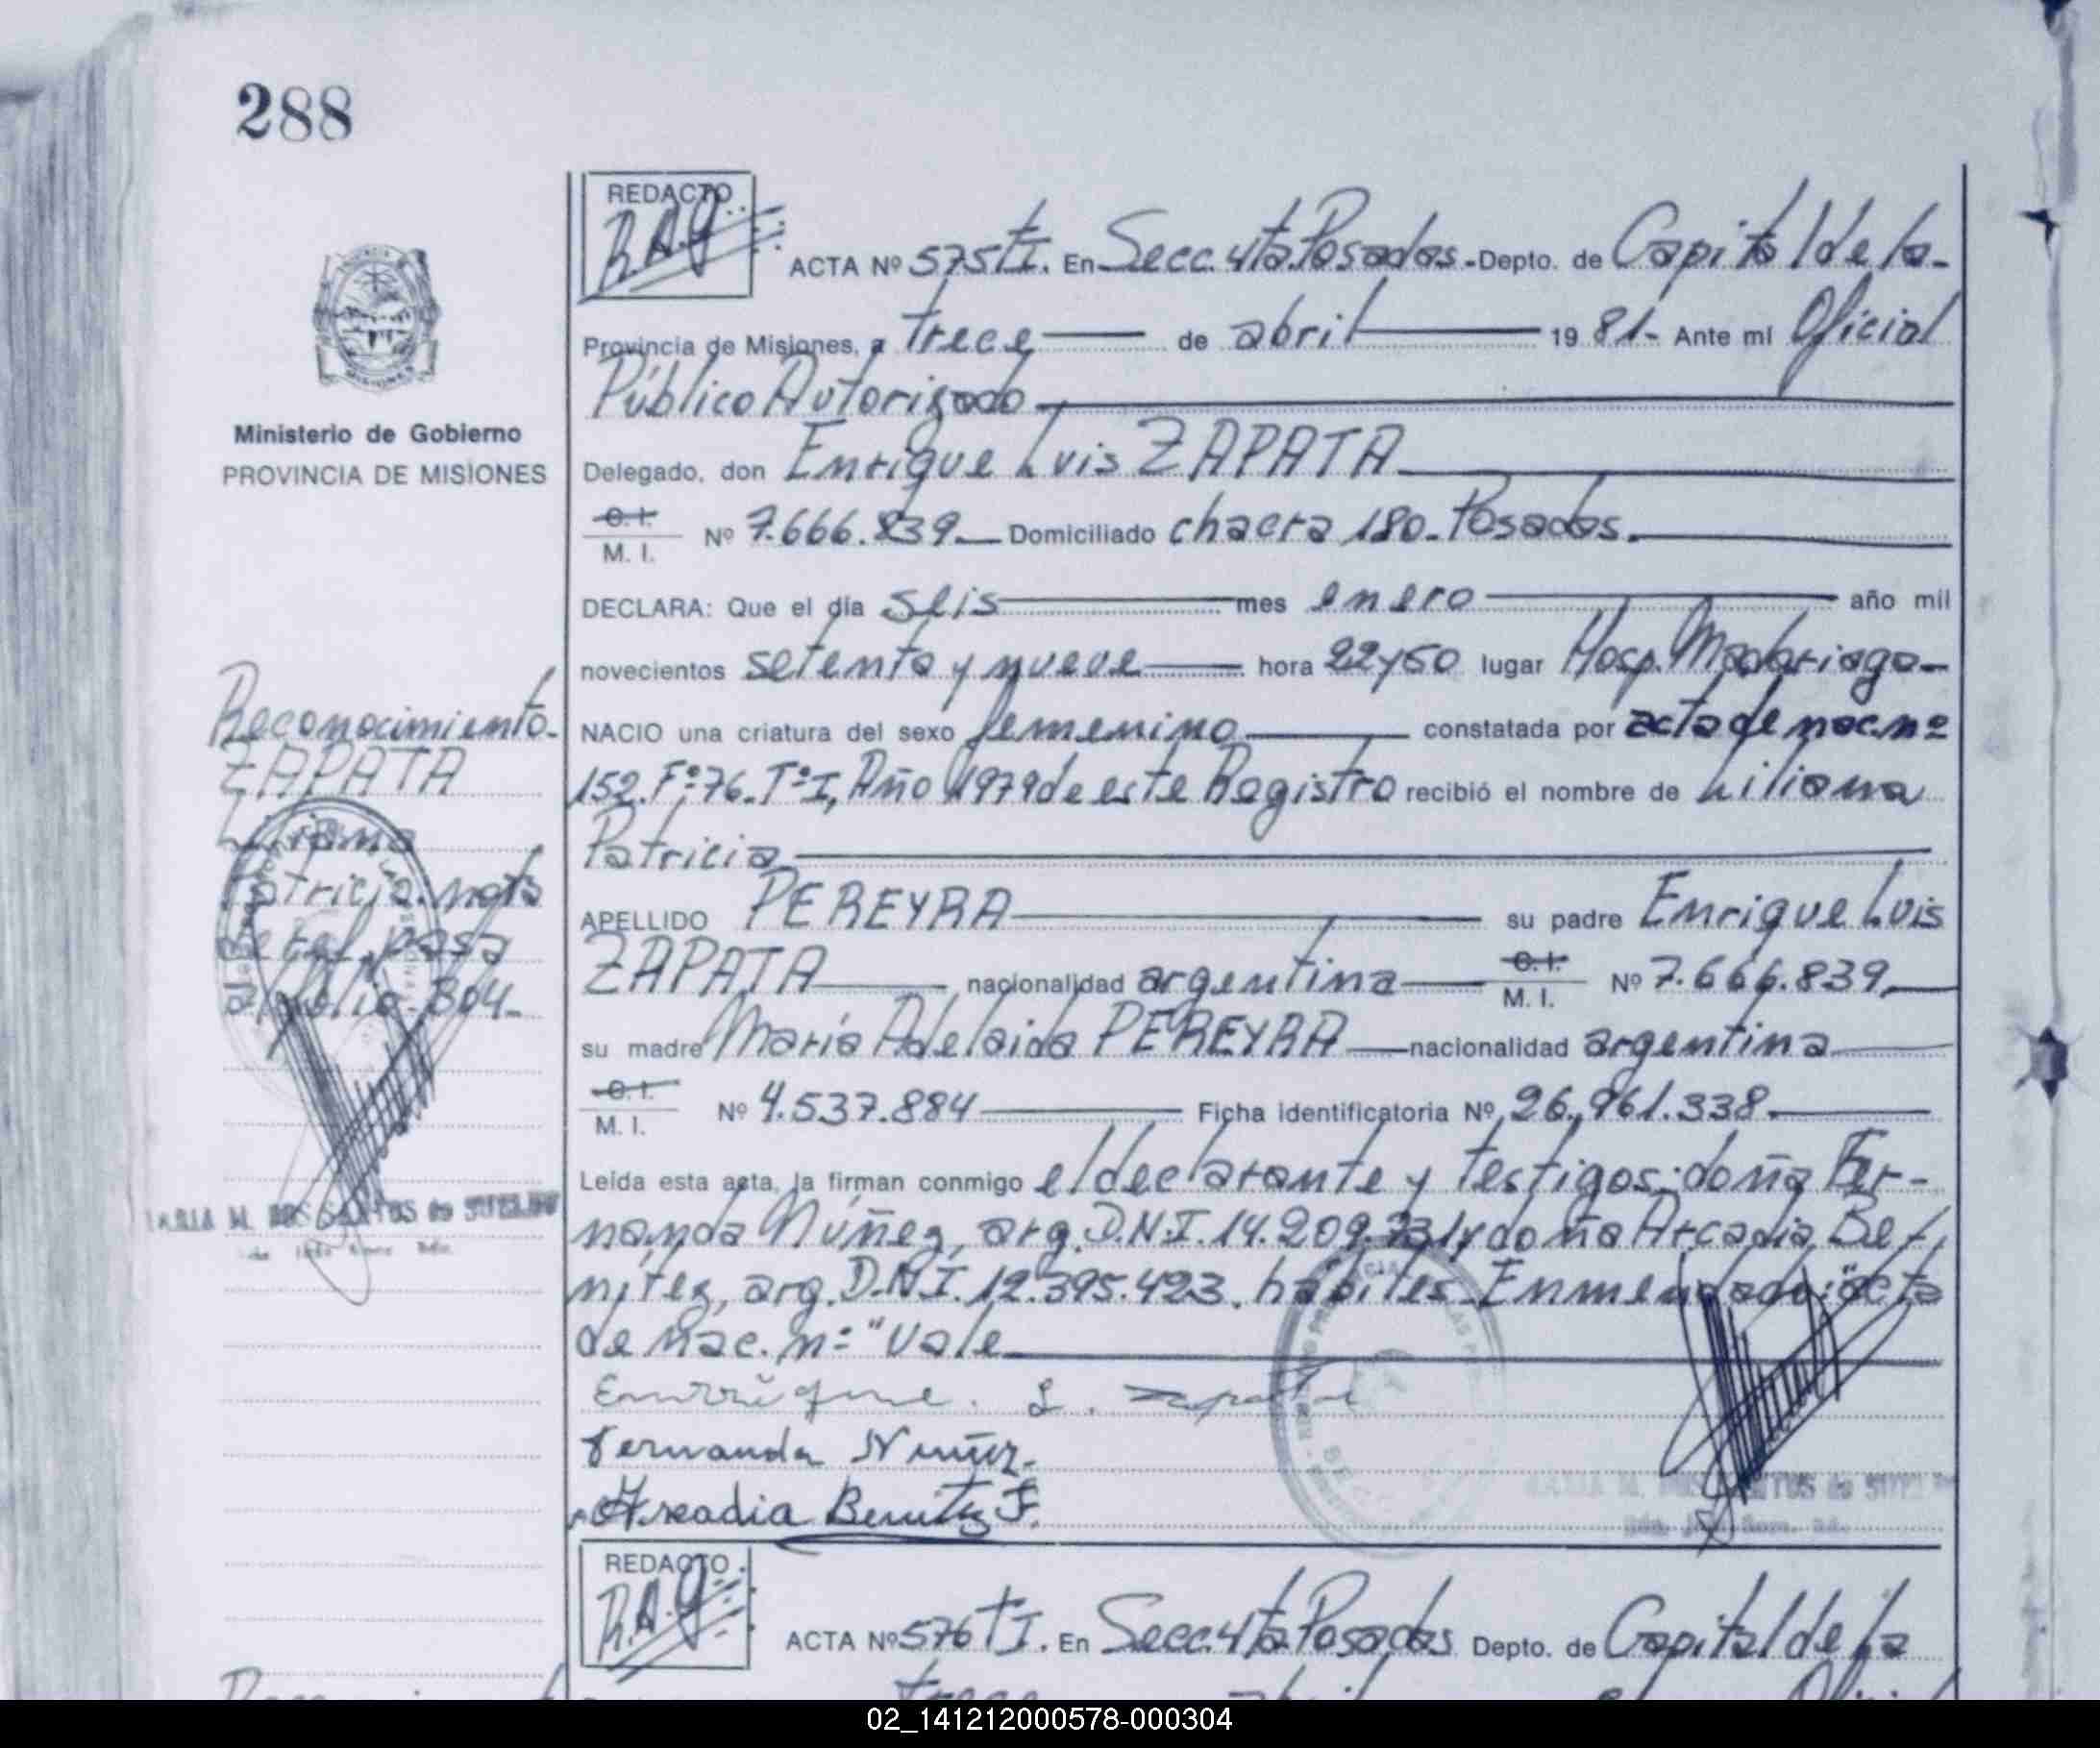 288
REDACTO
ACTA Nº 575 tI. En Secc. 4ta. Posadas - Depto. de Capital de la
Provincia de Misiones, a trece de abril 19 81- Ante mí Oficial
Público Autorizado
Delegado, don Enrique Luis ZAPATA
C. I.
M. I. Nº 7.666.839 Domiciliado chacra 180. Posadas.
DECLARA: Que el día seis mes enero año mil
novecientos setenta y nueve hora 22y50 lugar Hosp. Madariaga
NACIO una criatura del sexo femenino constatada por acta de nac. nº
152. Fº 76. Tº I, Año 1979 de este Registro recibió el nombre de Liliana
Patricia
APELLIDO PEREYRA su padre Enrique Luis
ZAPATA nacionalidad argentina C. I. M. I. Nº 7.666.839
su madre María Adelaida PEREYRA nacionalidad argentina
C. I.
M. I. Nº 4.537.884 Ficha identificatoria Nº 26.961.338
Leída esta acta, la firman conmigo el declarante y testigos: doña Fer-
nanda Núñez, arg. D.N.I. 14.209. y doña Arcadia Be-
nítez, arg. D.N.I. 12.395.423. hábiles. Enmendado: "acta
de nac. nº" Vale
Enrrique. L. Zapata
Fernanda Nuñez.
Arcadia Benitez F.
Ministerio de Gobierno
PROVINCIA DE MISIONES
Reconocimiento
ZAPATA
Liliana
Patricia. nota
de ref. pasa
folio. 304.
MARIA M. DOS SANTOS de
MARIA M. DOS SANTOS de
REDACTO
ACTA Nº 576 TI. En Secc. 4ta Posadas Depto. de Capital de la
trece abril Oficial
02_141212000578-000304